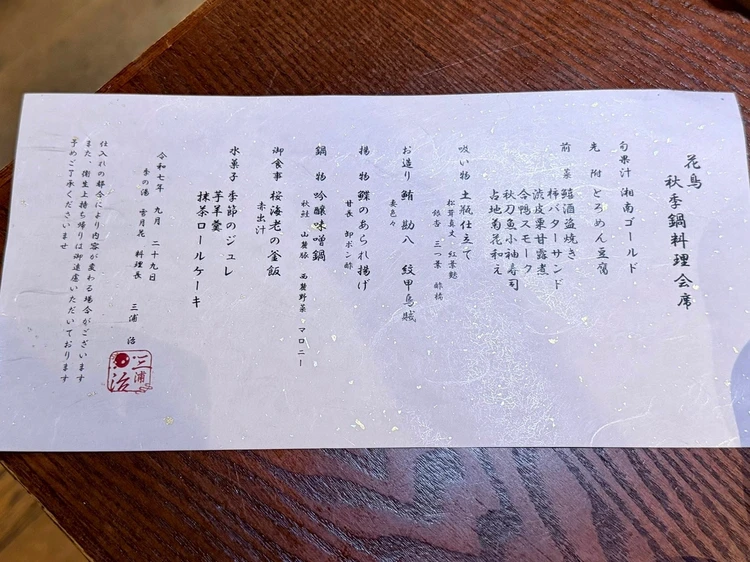 花鳥
秋季鍋料理会席
旬果汁 湘南ゴールド
先附 とろめん豆腐
前菜 鱚酒盗焼き
柿バターサンド
渋皮栗甘露煮
合鴨スモーク
秋刀魚小袖寿司
占地菊花和え
吸い物 土瓶仕立て
松茸真丈 紅葉麩
銀杏 三つ葉 酢橘
お造り 鮪 勘八 紋甲烏賊
妻色々
揚物 鰈のあられ揚げ
甘長 卸ポン酢
鍋物 吟醸味噌鍋
秋鮭 山麓豚 西麓野菜 マロニー
御食事 桜海老の釜飯
赤出汁
水菓子 季節のジュレ
芋羊羹
抹茶ロールケーキ
令和七年 九月 二十九日
季の湯 雪月花 料理長 三浦 治
三浦
治
仕入れの都合により内容が変わる場合がございます
また、衛生上持ち帰りは御遠慮いただいております
予めご了承くださいませ